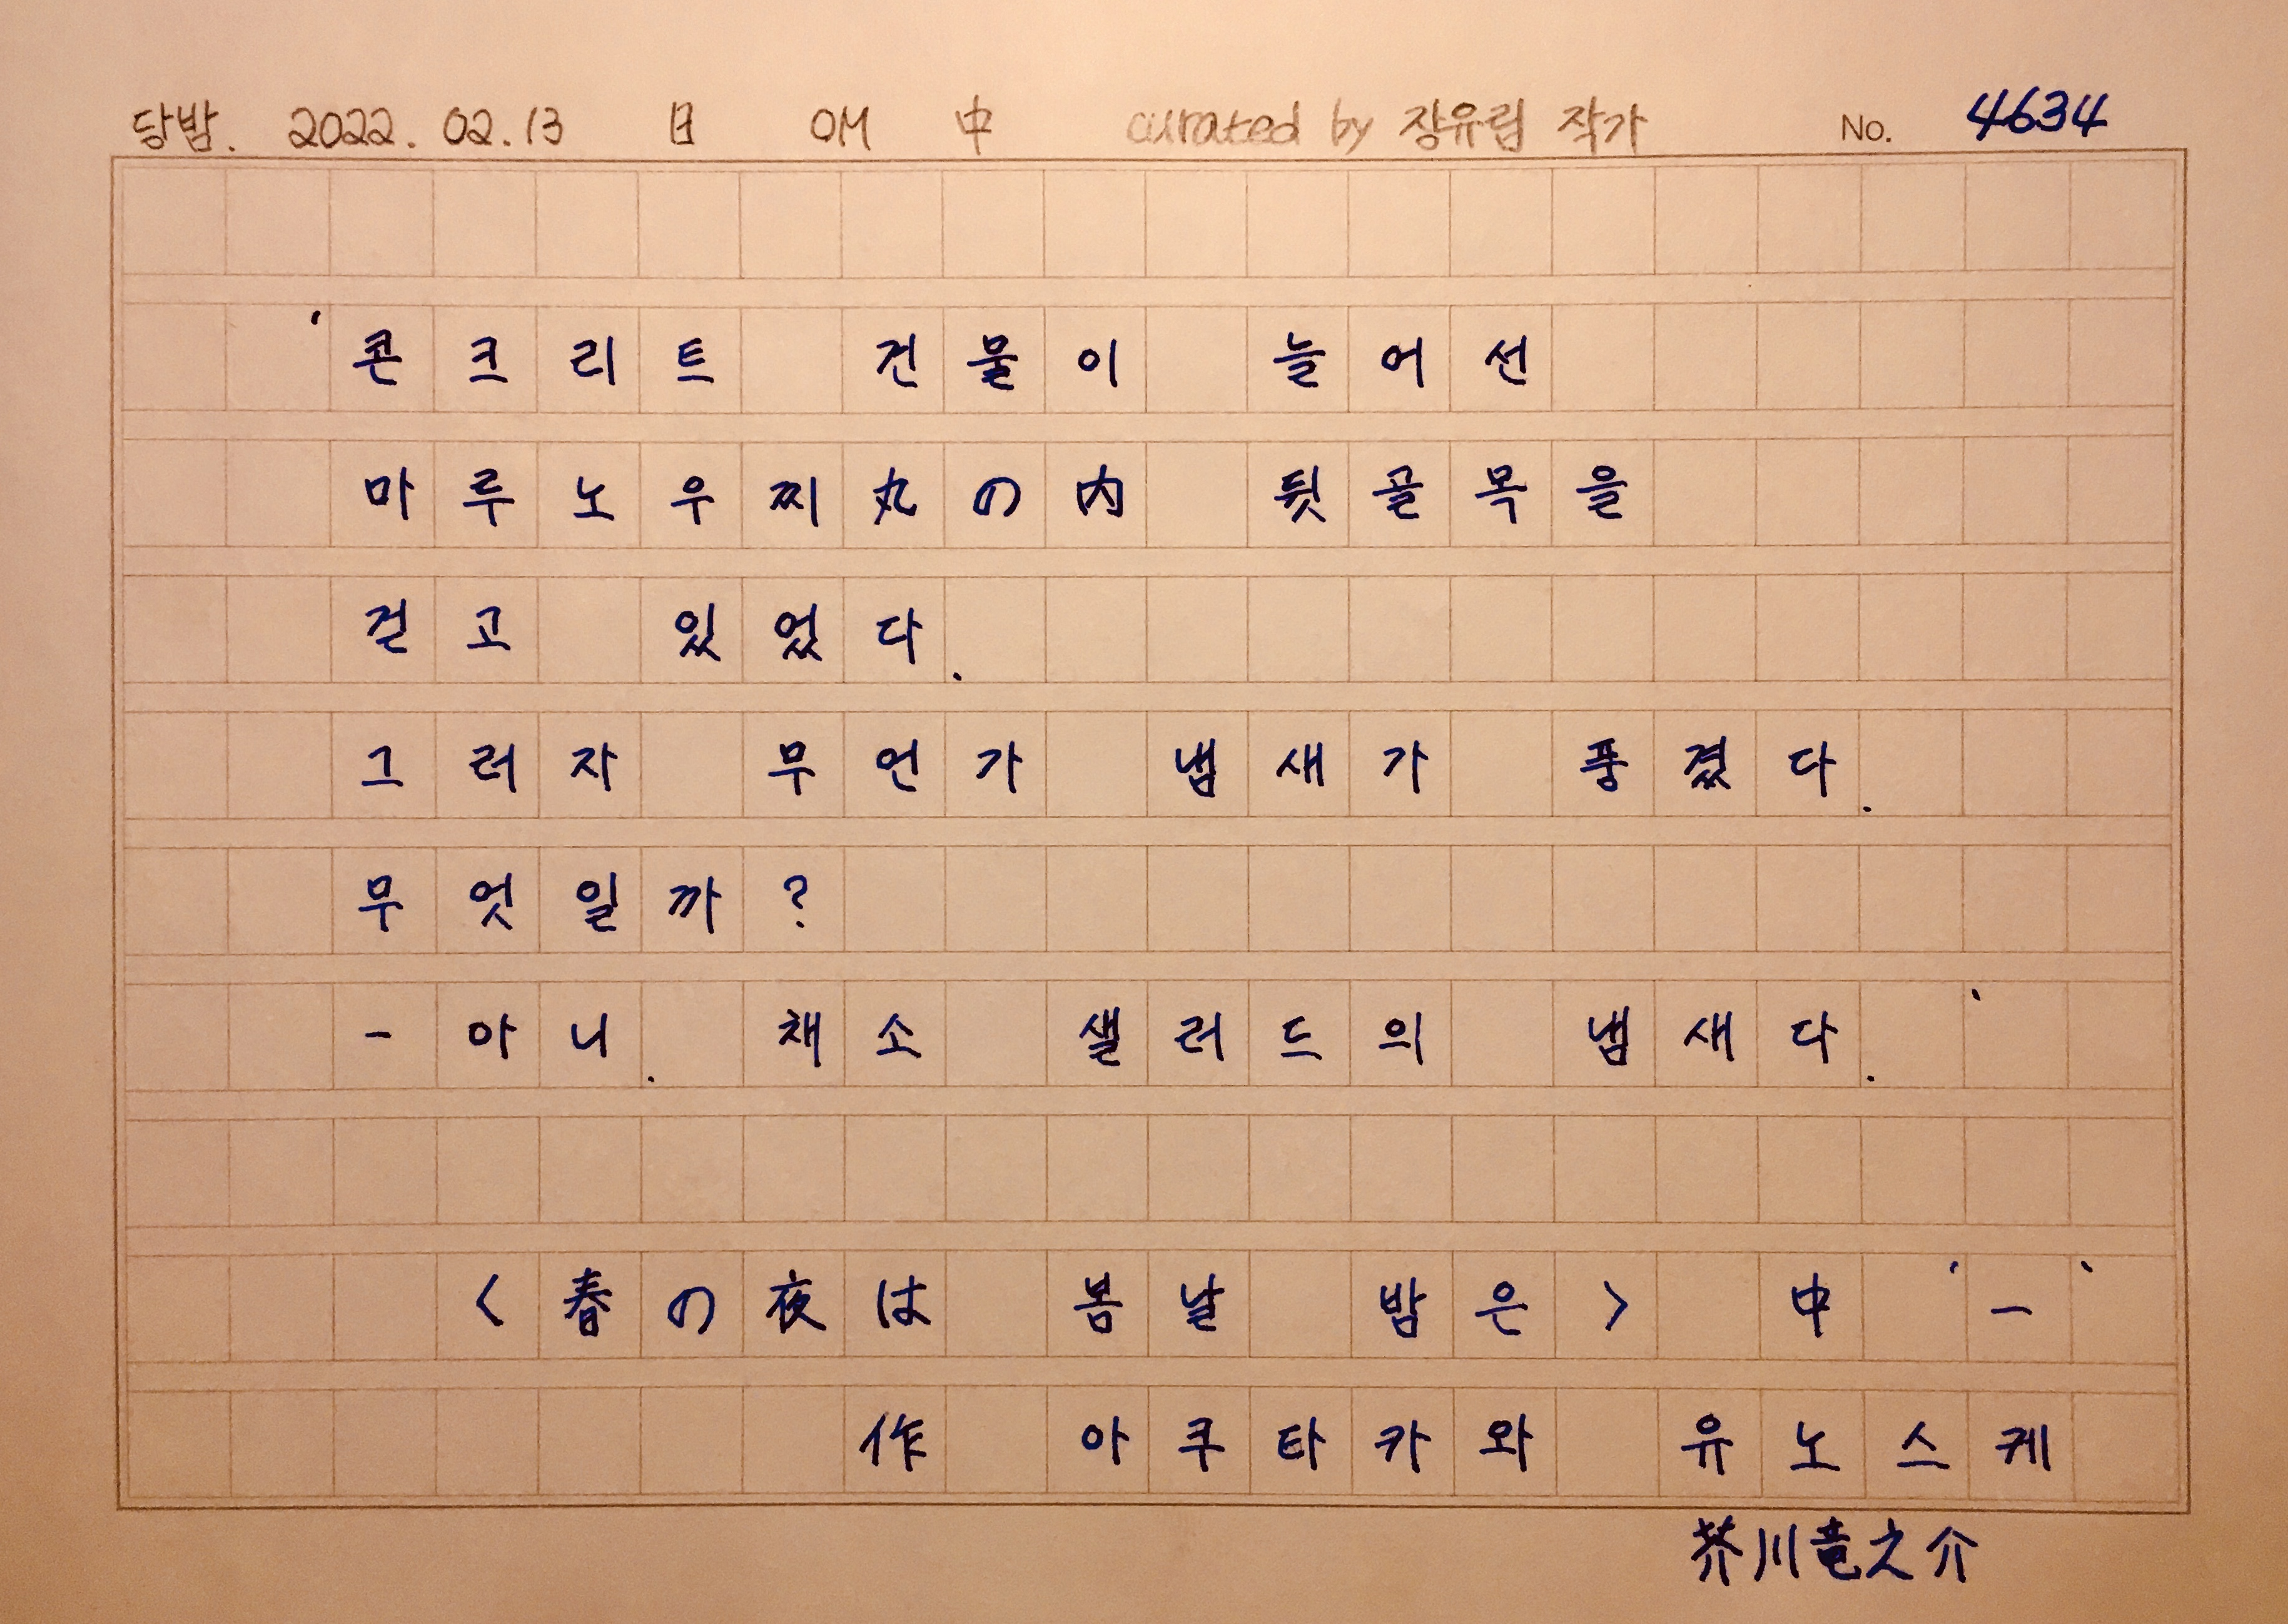 당밤. 2022. 02. 13 日 OM 中 curated by 장유림 작가 No. 4634
'콘크리트 건물이 늘어선
마루노우찌丸の内 뒷골목을
걷고 있었다.
그러자 무언가 냄새가 풍겼다.
무엇일까?
-아니. 채소 샐러드의 냄새다.'
<春の夜は 봄날 밤은> 中 '一'
作 아쿠타카와 유노스케
芥川竜之介